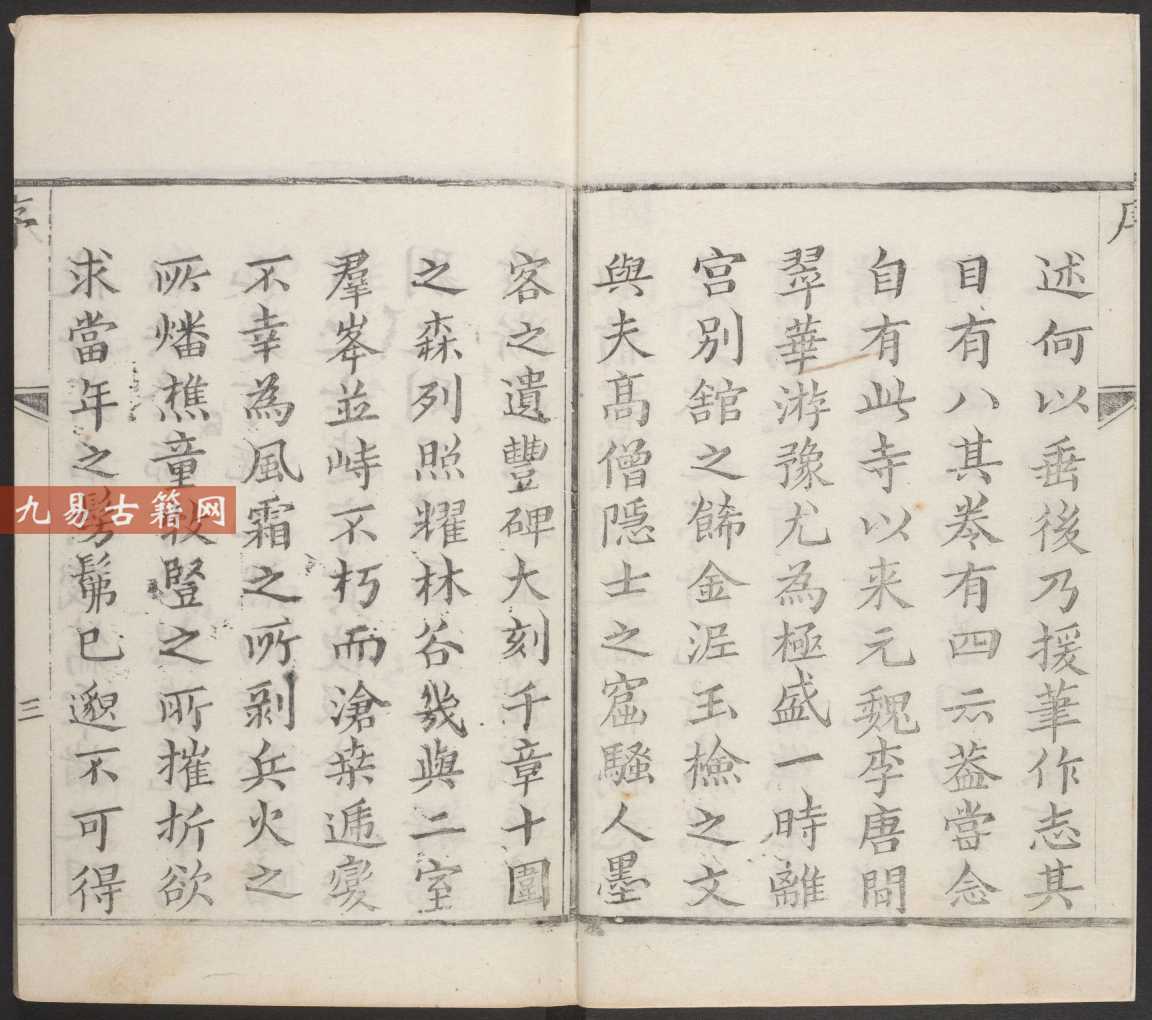 序
述何以垂後乃援筆作志其
目有八其卷有四云葢當念
自有此寺以来元魏李唐間
翠華游豫尤為極盛一時離
宮別舘之餙金泥玉檢之文
與夫髙僧隱士之窟騷人墨
客之遺豐碑大刻千章十圍
之森列照耀林谷幾與二室
羣峯並峙不朽而滄桒遞變
不幸為風霜之所剥兵火之
所燔樵童牧豎之所摧折欲
求當年之髣髴已邈不可得
序
三
九易古籍网